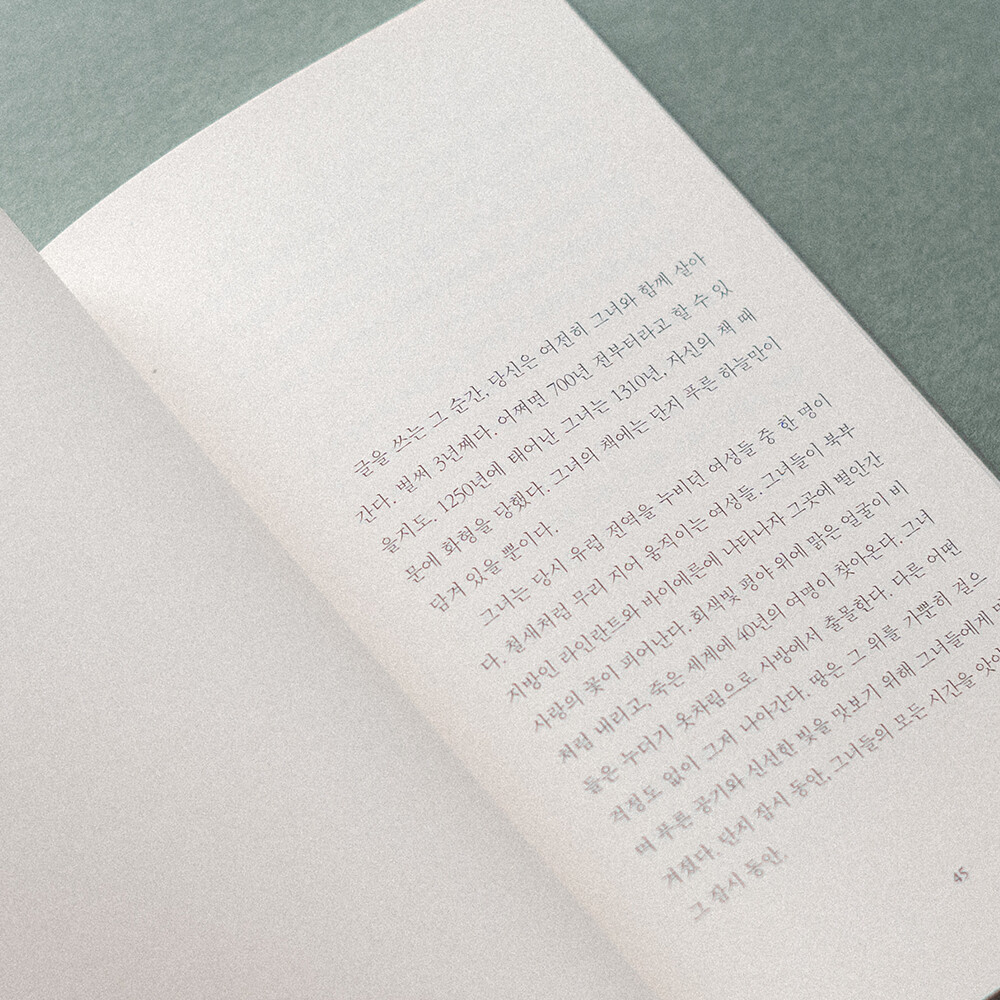 글을 쓰는 그 순간, 당신은 여전히 그녀와 함께 살아
간다. 벌써 3년째다. 어쩌면 700년 전부터라고 할 수 있
을지도. 1250년에 태어난 그녀는 1310년, 자신의 책 때
문에 화형을 당했다. 그녀의 책에는 단지 푸른 하늘만이
담겨 있을 뿐이다.
그녀는 당시 유럽 전역을 누비던 여성들 중 한 명이
다. 철새처럼 무리 지어 움직이는 여성들. 그녀들이 북부
지방인 라인란트와 바이에른에 나타나자 그곳에 별안간
사랑의 꽃이 피어난다. 회색빛 평야 위에 맑은 얼굴이 비
처럼 내리고, 죽은 세계에 40년의 여명이 찾아온다. 그녀
들은 누더기 옷차림으로 사방에서 출몰한다. 다른 어떤
걱정도 없이 그저 나아간다. 땅은 그 위를 가뿐히 걸으
며 푸른 공기와 신선한 빛을 맛보기 위해 그녀들에게
겨졌다. 단지 잠시 동안, 그녀들의 모든 시간을
그 잠시 동안.
45